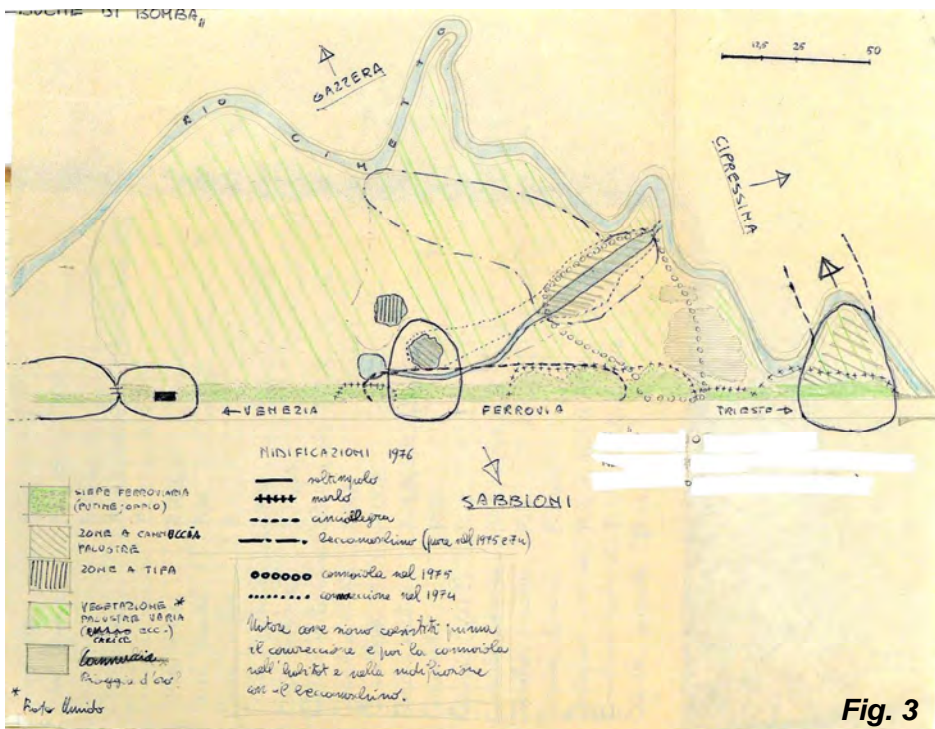 "BUCHE DI BOMBA"
GAZZERA
12,5 25 50
RIO CIMETO
CIPRESSINA
← VENEZIA FERROVIA TRIESTE →
NIDIFICAZIONI 1976
saltimpalo
merlo
cinciallegra
beccamoschino (pure nel 1975 e 74)
cannaiola nel 1975
cannareccione nel 1974
Notare come siano coesistiti prima
il cannareccione e poi la cannaiola
nell'habitat e nella nidificazione
con il beccamoschino.
SABBIONI
SIEPE FERROVIARIA
(RUTINE; OPPIO)
ZONE A CANNUCCIA
PALUSTRE
ZONE A TIFA
VEGETAZIONE *
PALUSTRE VARIA
( ECC.)
CARICE
Cannuccia
Pioggia d'oro?
* Prato Umido
Fig. 3